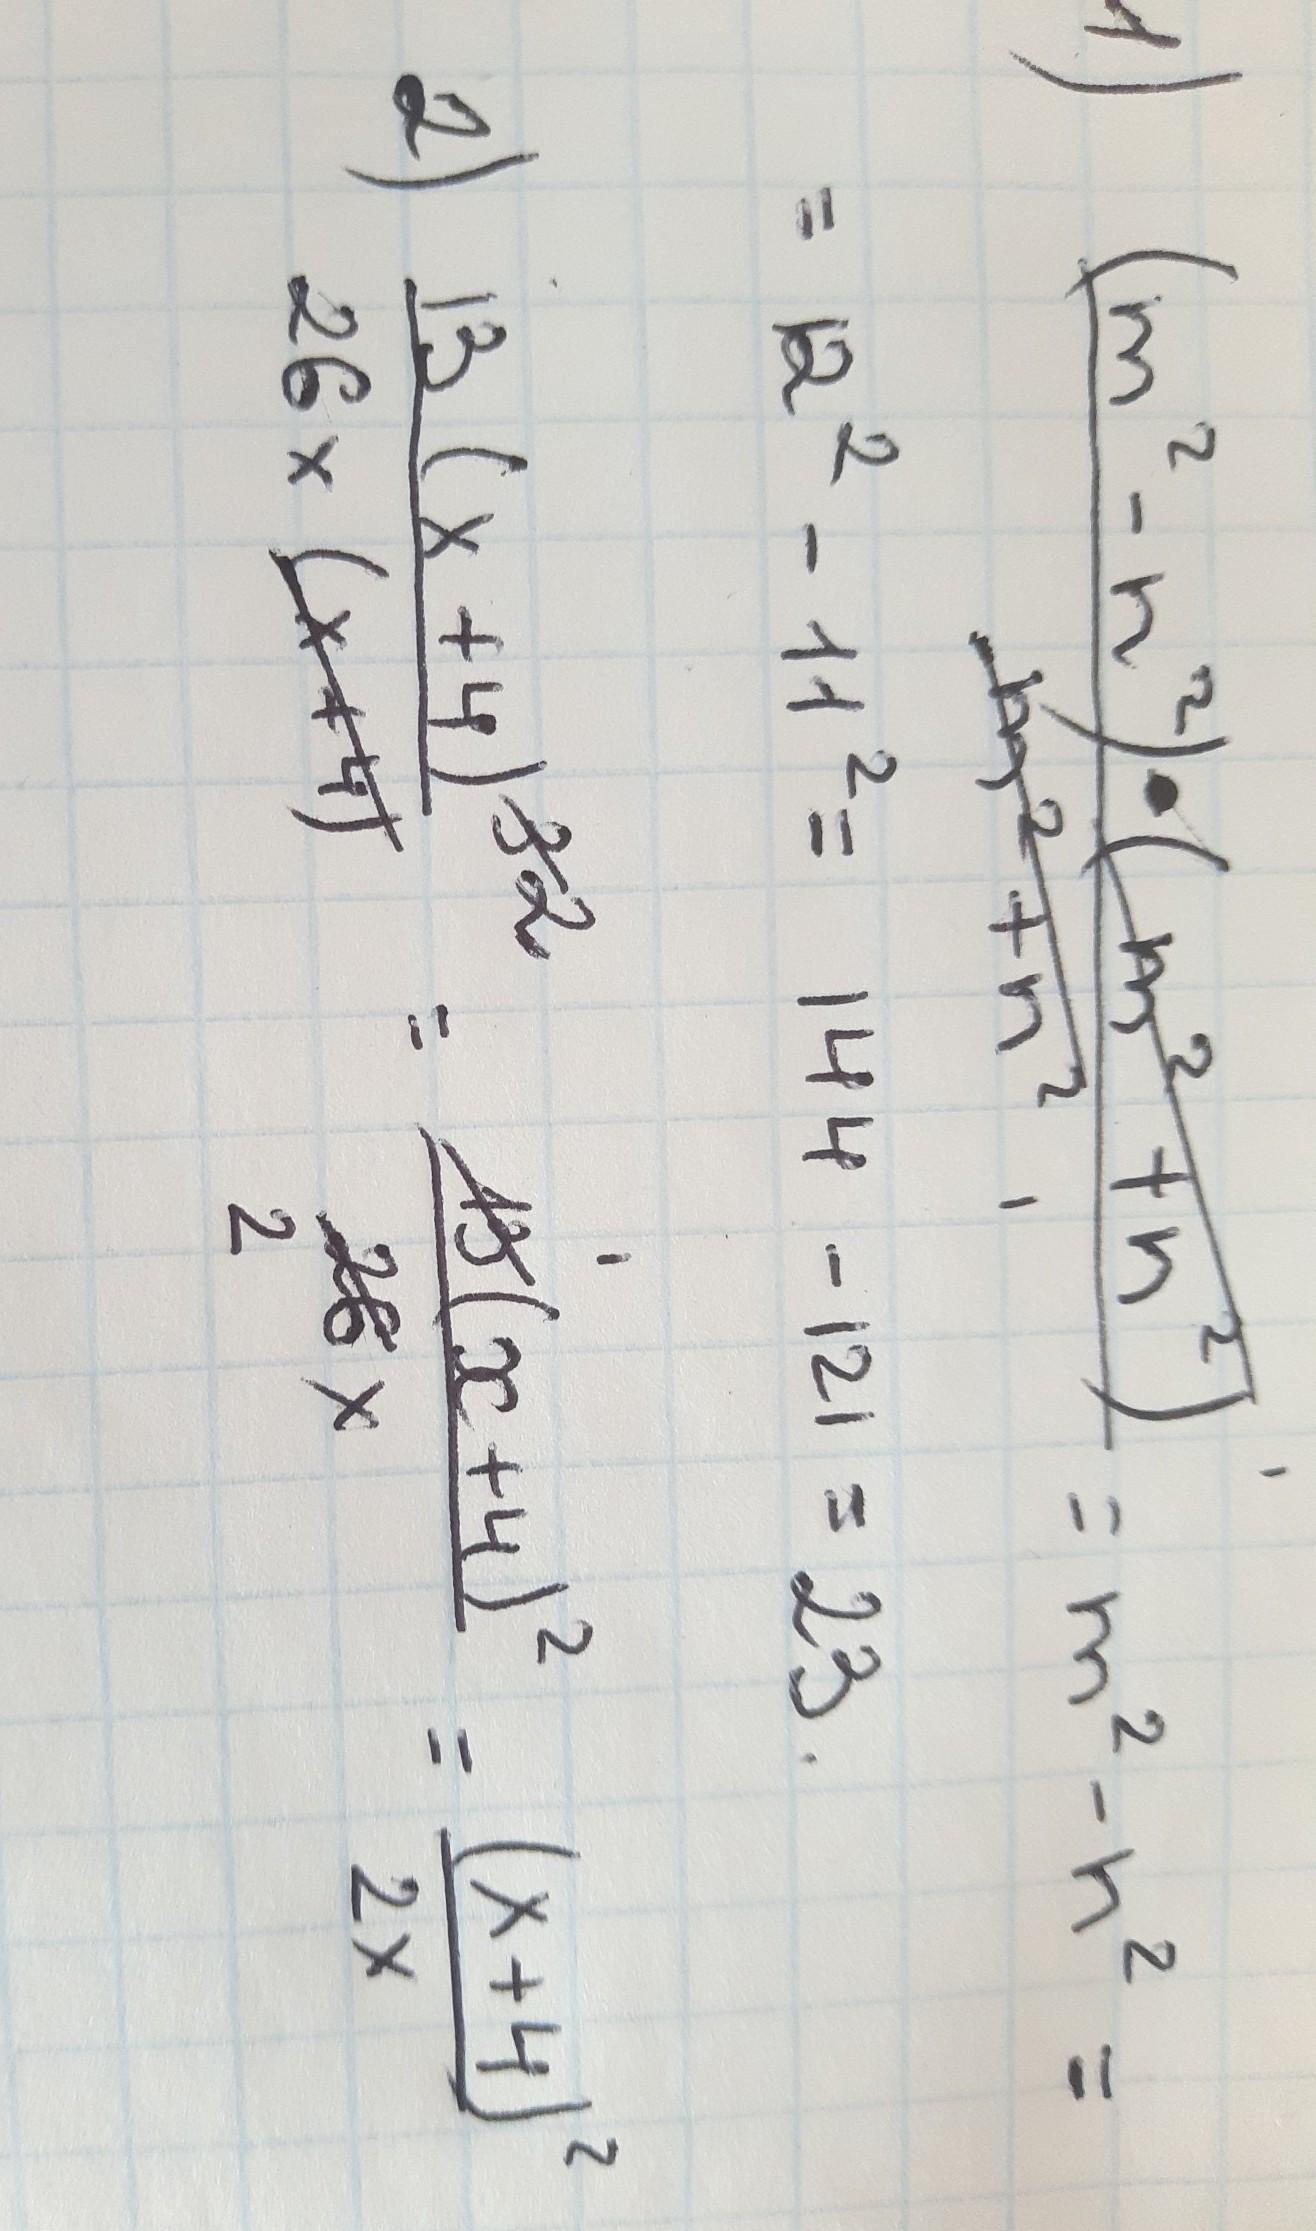 1) (m² - n²) • (m² + n²) = m² - n² =
m² + n²
= 12² - 11² = 144 - 121 = 23.
2) 13 (x + 4)³ ² = 13 (x + 4)² = (x + 4)²
26 x (x + 4) 26 x 2x
2